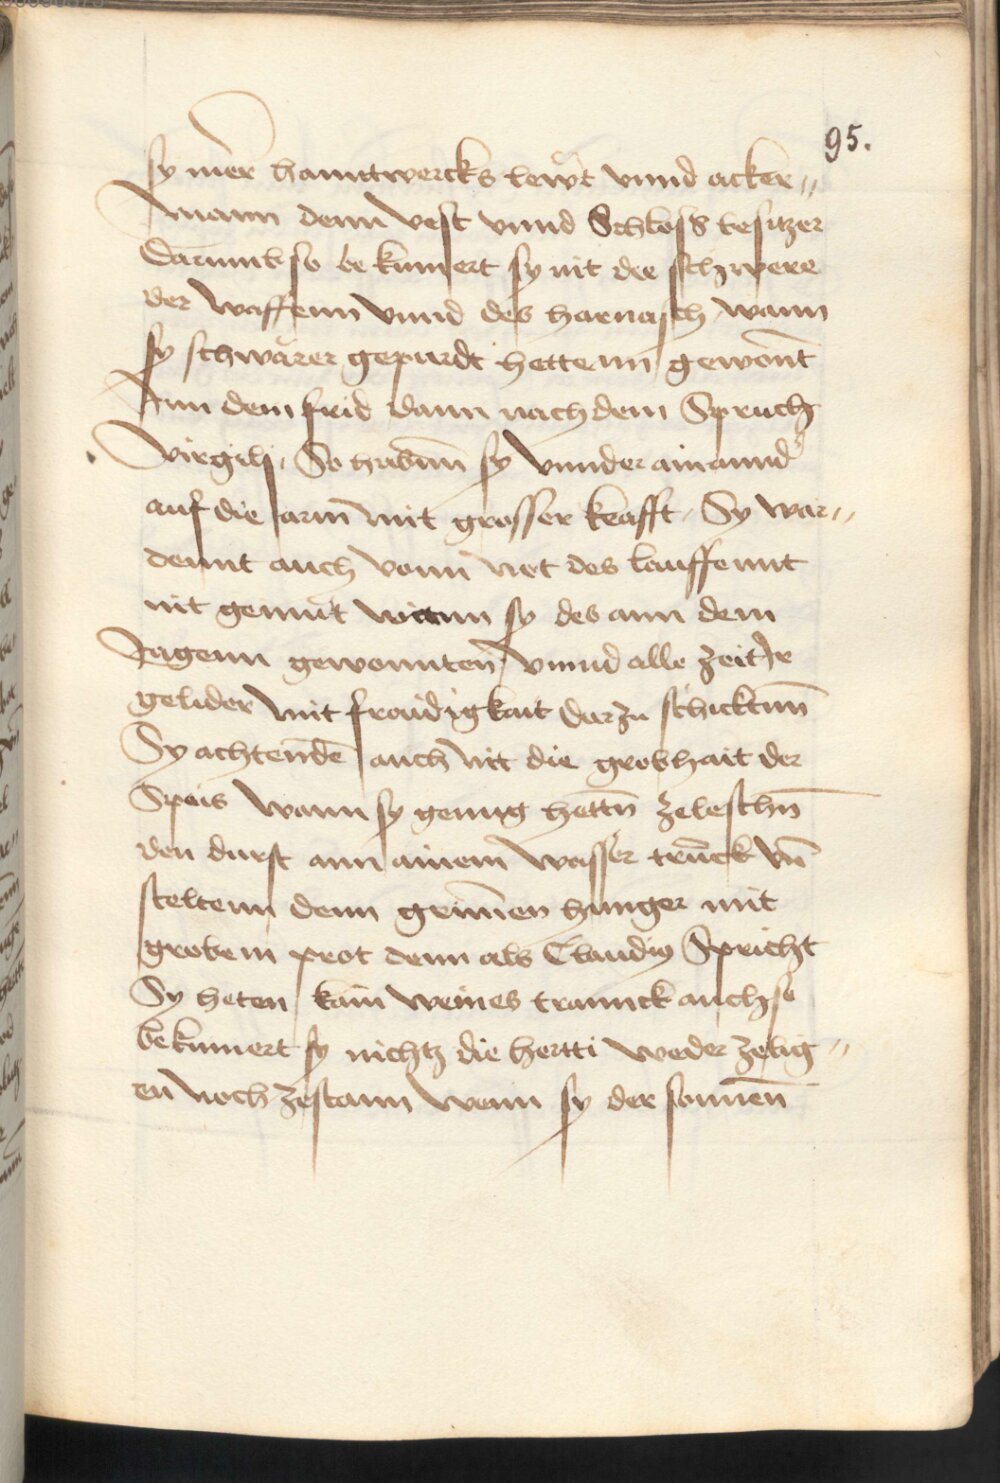 95.
sy mer hanntwercks lewt vnnd acker„
mann denn vest vnnd Schloss besitzer
Darumb so bekumert sy nit die schwere
der waffenn vnnd des harnasch wann
sy schwärer gepurdt hettenn gewont
Inn dem frid dann nach dem Spruch
Virgilii, So habenn sy vnnder ainannd
auf die arm mit grosser krafft, Sy war„
dennt auch vonn wet des lauffennt
nit gemüt wann sy des ann dem
Jagenn gewonnten vnnd alle zeit Ir
gelider mit froudigkait darzu schicktenn
Sy achtende auch nit die grobhait der
Speis wann sy genug hettn zeleschn
den durst ann ainem wasser trunck vn̄
steltenn denn grimen hunger mit
grobem prot denn als Claudius Spricht
Sy heten kain weines trannck auch so
bekumert sy nichtz die hertti weder zelig„
en noch zestann wenn sy der sonnen